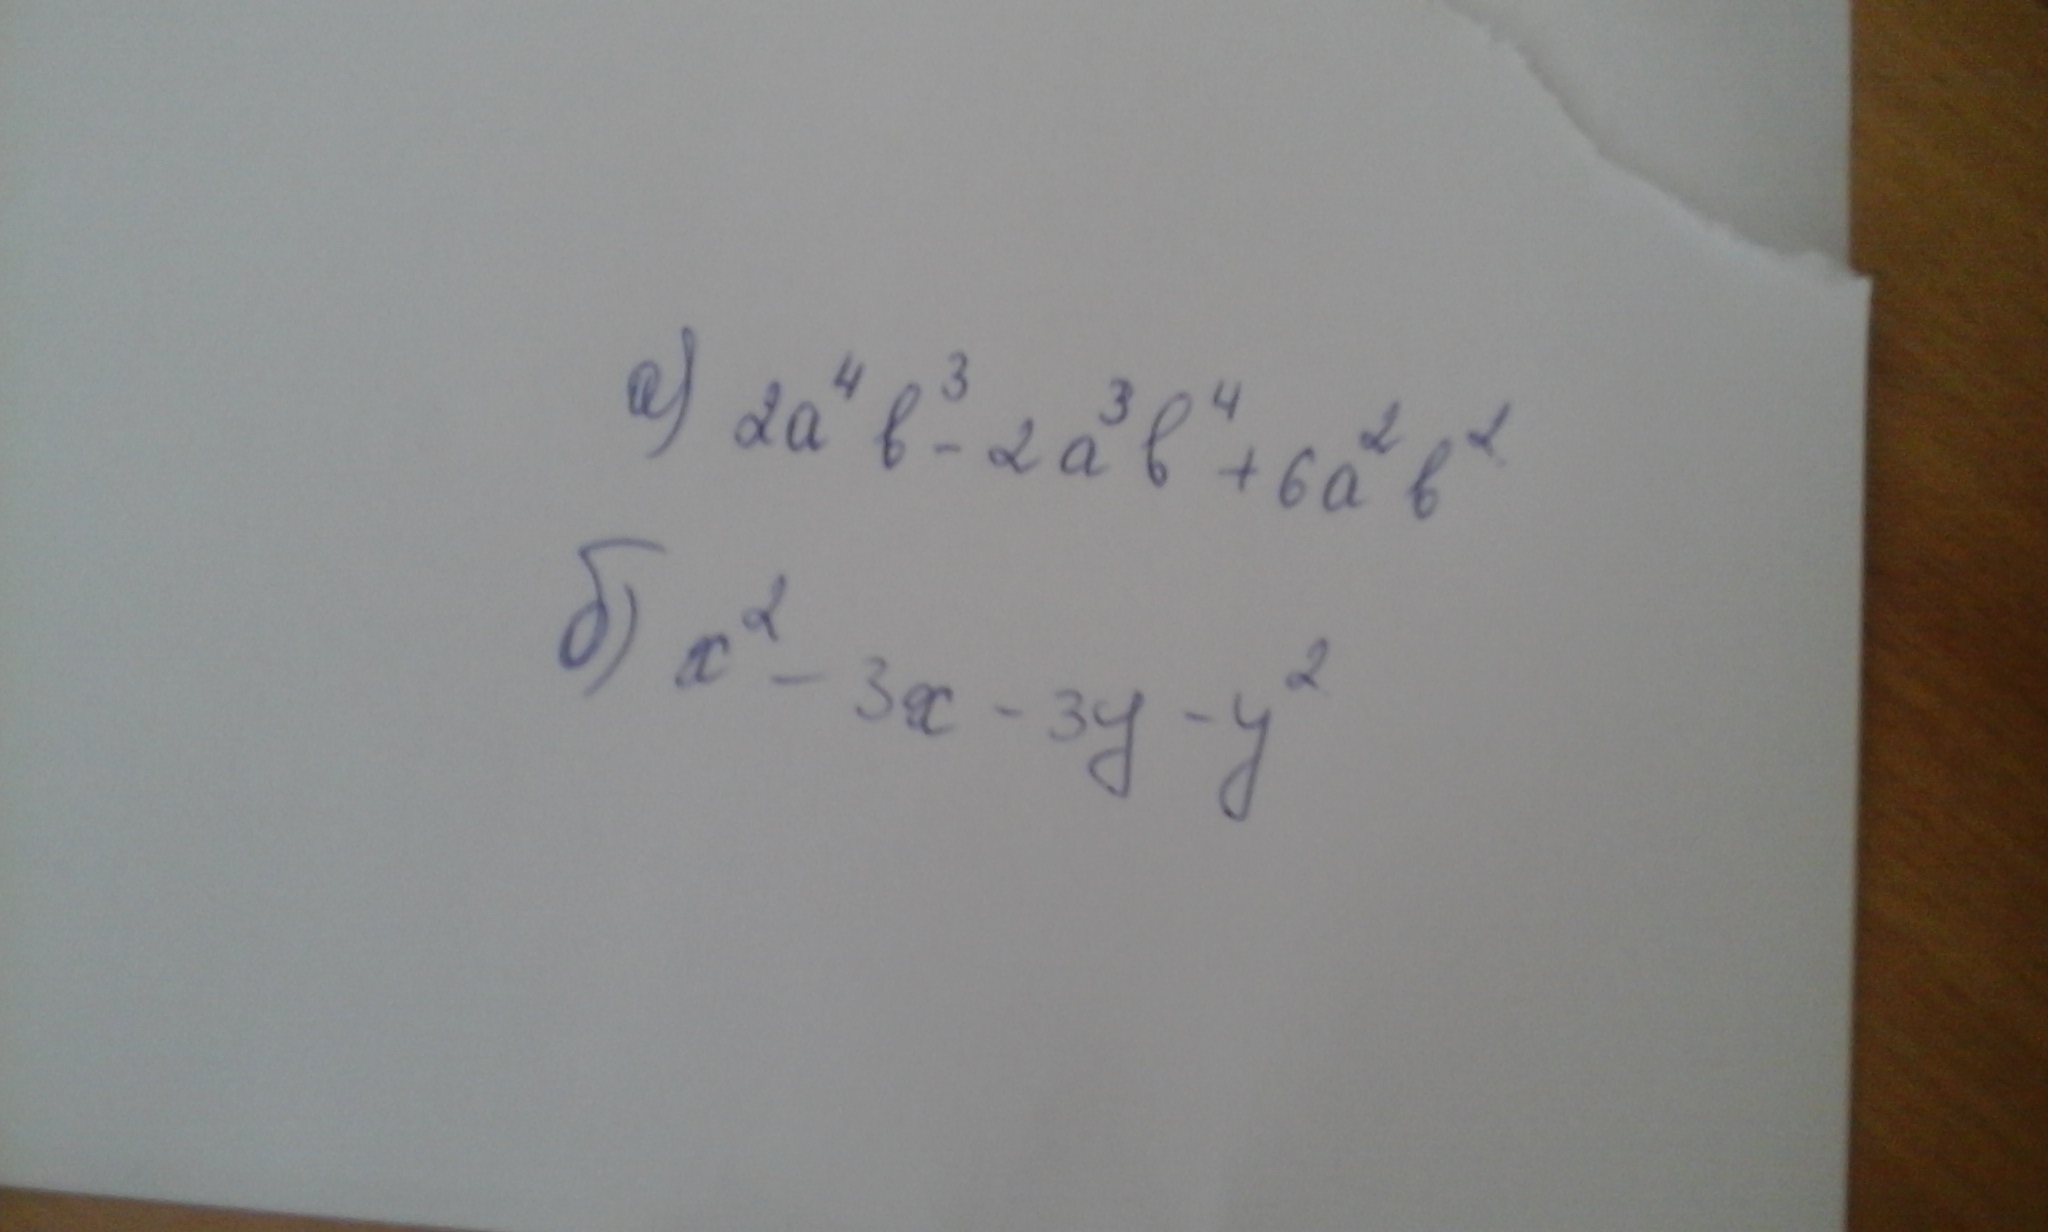 а) 2a⁴b³ - 2a³b⁴ + 6a²b²
б) x² - 3x - 3y - y²